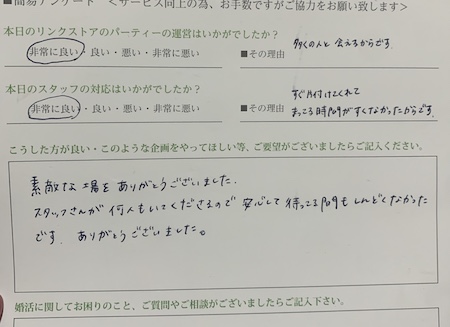 ■簡易アンケート <サービス向上の為、お手数ですがご協力をお願い致します>
本日のリンクストアのパーティーの運営はいかがでしたか？
非常に良い・良い・悪い・非常に悪い ■その理由 多くの人と会えるからです。
本日のスタッフの対応はいかがでしたか？
すぐ片付けてくれて
非常に良い・良い・悪い・非常に悪い ■その理由 まってる時間がすくなかったからです。
こうした方が良い・このような企画をやってほしい等、ご要望がございましたらご記入ください。
素敵な場をありがとうございました。
スタッフさんが何人もいてくださるので安心して待ってる間もしんどくなかった
です。ありがとうございました。
婚活に関してお困りのこと、ご質問やご相談がございましたらご記入下さい。